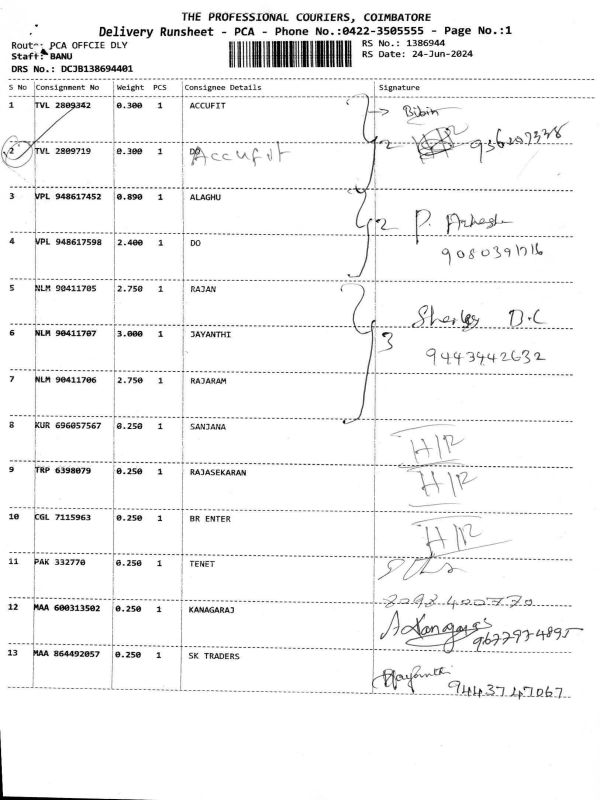 THE PROFESSIONAL COURIERS, COIMBATORE
Delivery Runsheet - PCA - Phone No.:0422-3505555 - Page No.:1
Route: PCA OFFCIE DLY
RS No.: 1386944
Staff: BANU
RS Date: 24-Jun-2024
DRS No.: DCJB138694401
S No Consignment No Weight PCS Consignee Details Signature
1 TVL 2809342 0.300 1 ACCUFIT Bibin
2 TVL 2809719 0.300 1 DO Accufit 2
3 VPL 948617452 0.890 1 ALAGHU 2 P.
4 VPL 948617598 2.400 1 DO
5 NLM 90411705 2.750 1 RAJAN
6 NLM 90411707 3.000 1 JAYANTHI 3
9443442632
7 NLM 90411706 2.750 1 RAJARAM
8 KUR 696057567 0.250 1 SANJANA H/R
9 TRP 6398079 0.250 1 RAJASEKARAN H/R
10 CGL 7115963 0.250 1 BR ENTER H/R
11 PAK 332770 0.250 1 TENET
12 MAA 600313502 0.250 1 KANAGARAJ
9677974895
13 MAA 864492057 0.250 1 SK TRADERS
9443747067